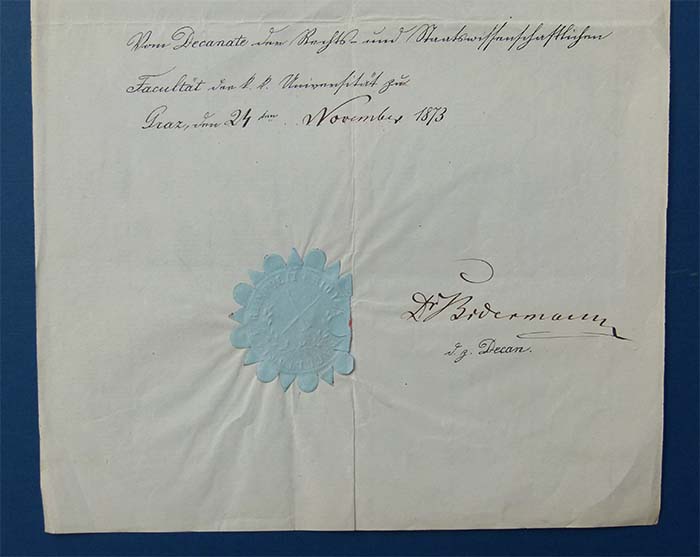 Vom Decanate der Rechts- und Staatswissenschaftlichen
Facultät der k. k. Universität zu
Graz, den 24ten November 1873
Dr Bidermann
d. z. Decan.